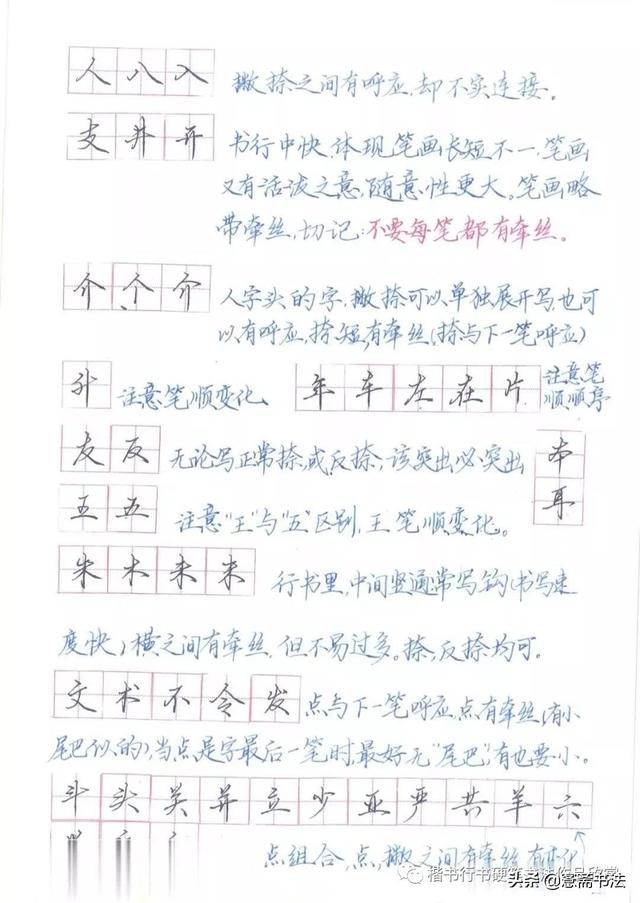 人八入
撇捺之间有呼应,却不实连接。
支井开
书行中快,体现笔画长短不一,笔画
又有活泼之意,随意性更大。笔画略
带牵丝,切记:不要每笔都有牵丝。
介个介
人字头的字,撇捺可以单独展开写,也可
以有呼应,捺短,有牵丝(捺与下一笔呼应)
升 注意笔顺变化、
年车左在片 注意笔
顺顺序
友反 无论写正常捺,或反捺,该突出必突出
本
耳
王五 注意“王”与“五”区别,王笔顺变化。
朱木未末
行书里,中间竖通常写钩(书写速
度快)横之间有牵丝,但不易过多。捺,反捺均可。
文术不令发 点与下一笔呼应,点有牵丝(有小
尾巴似的),当点是字最后一笔时,最好无“尾巴”,有也要小。
斗头关并立少亚严共羊六
点组合,点,撇之间有牵丝,有变化
楷书行书硬笔书法作品欣赏
头条@慧斋书法